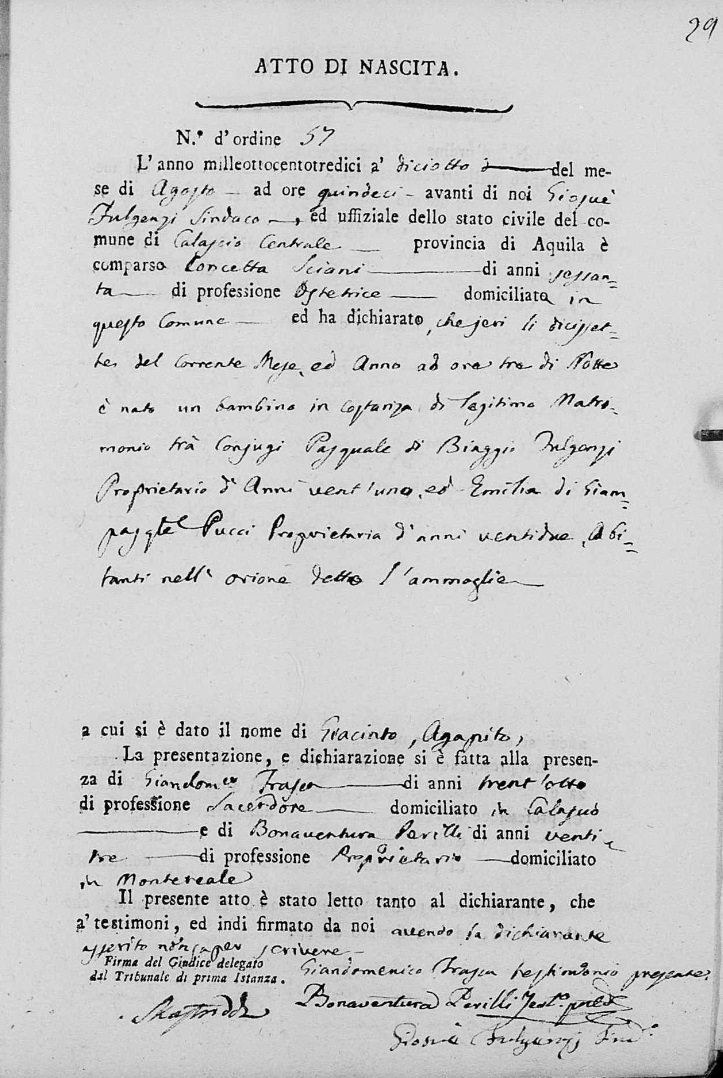 29
ATTO DI NASCITA.
N.° d'ordine 57
L'anno milleottocentotredici a' diciotto del me-
se di Agosto ad ore quindeci avanti di noi Giosuè
Fulgenzj Sindaco, ed uffiziale dello stato civile del co-
mune di Calascio Centrale provincia di Aquila è
comparsa Concetta Sciani di anni sessan-
ta di professione Ostetrice domiciliata in
questo Comune ed ha dichiarato, che jeri li dicisset-
te del corrente Mese, ed Anno ad ore tre di Notte
è nato un bambino in costanza di legitimo Matri-
monio trà Conjugi Pasquale di Biaggio Fulgenzj
Proprietario d'Anni vent'uno, ed Emilia di Giam-
pasqle Pucci Proprietaria d'anni ventidue, Abi-
tanti nell' orione detto l'ammoglie
a cui si è dato il nome di Giacinto, Agapito,
La presentazione, e dichiarazione si è fatta alla presen-
za di Giandomco Frasca di anni trent'otto
di professione Sacerdote domiciliato in Calascio
e di Bonaventura Perilli di anni venti
tre di professione Proprietario domiciliato
in Montereale
Il presente atto è stato letto tanto al dichiarante, che
a' testimoni, ed indi firmato da noi avendo la dichiarante
asserito non saper scrivere
Firma del Giudice delegato
dal Tribunale di prima Istanza.
Giandomenico Frasca testimonio presente
Bonaventura Perilli Testo
Giosuè Fulgenzj Sind.°